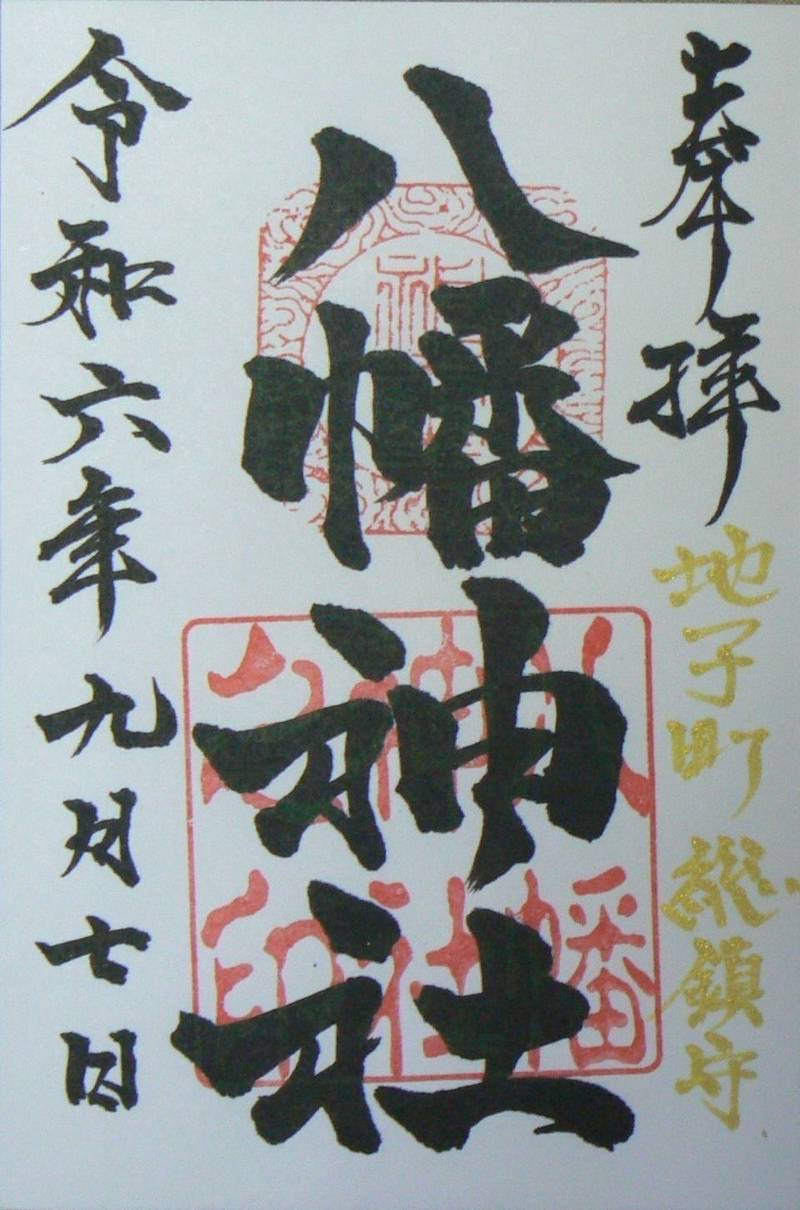 奉拝
地子町 総鎮守
八幡神社
令和六年九月七日